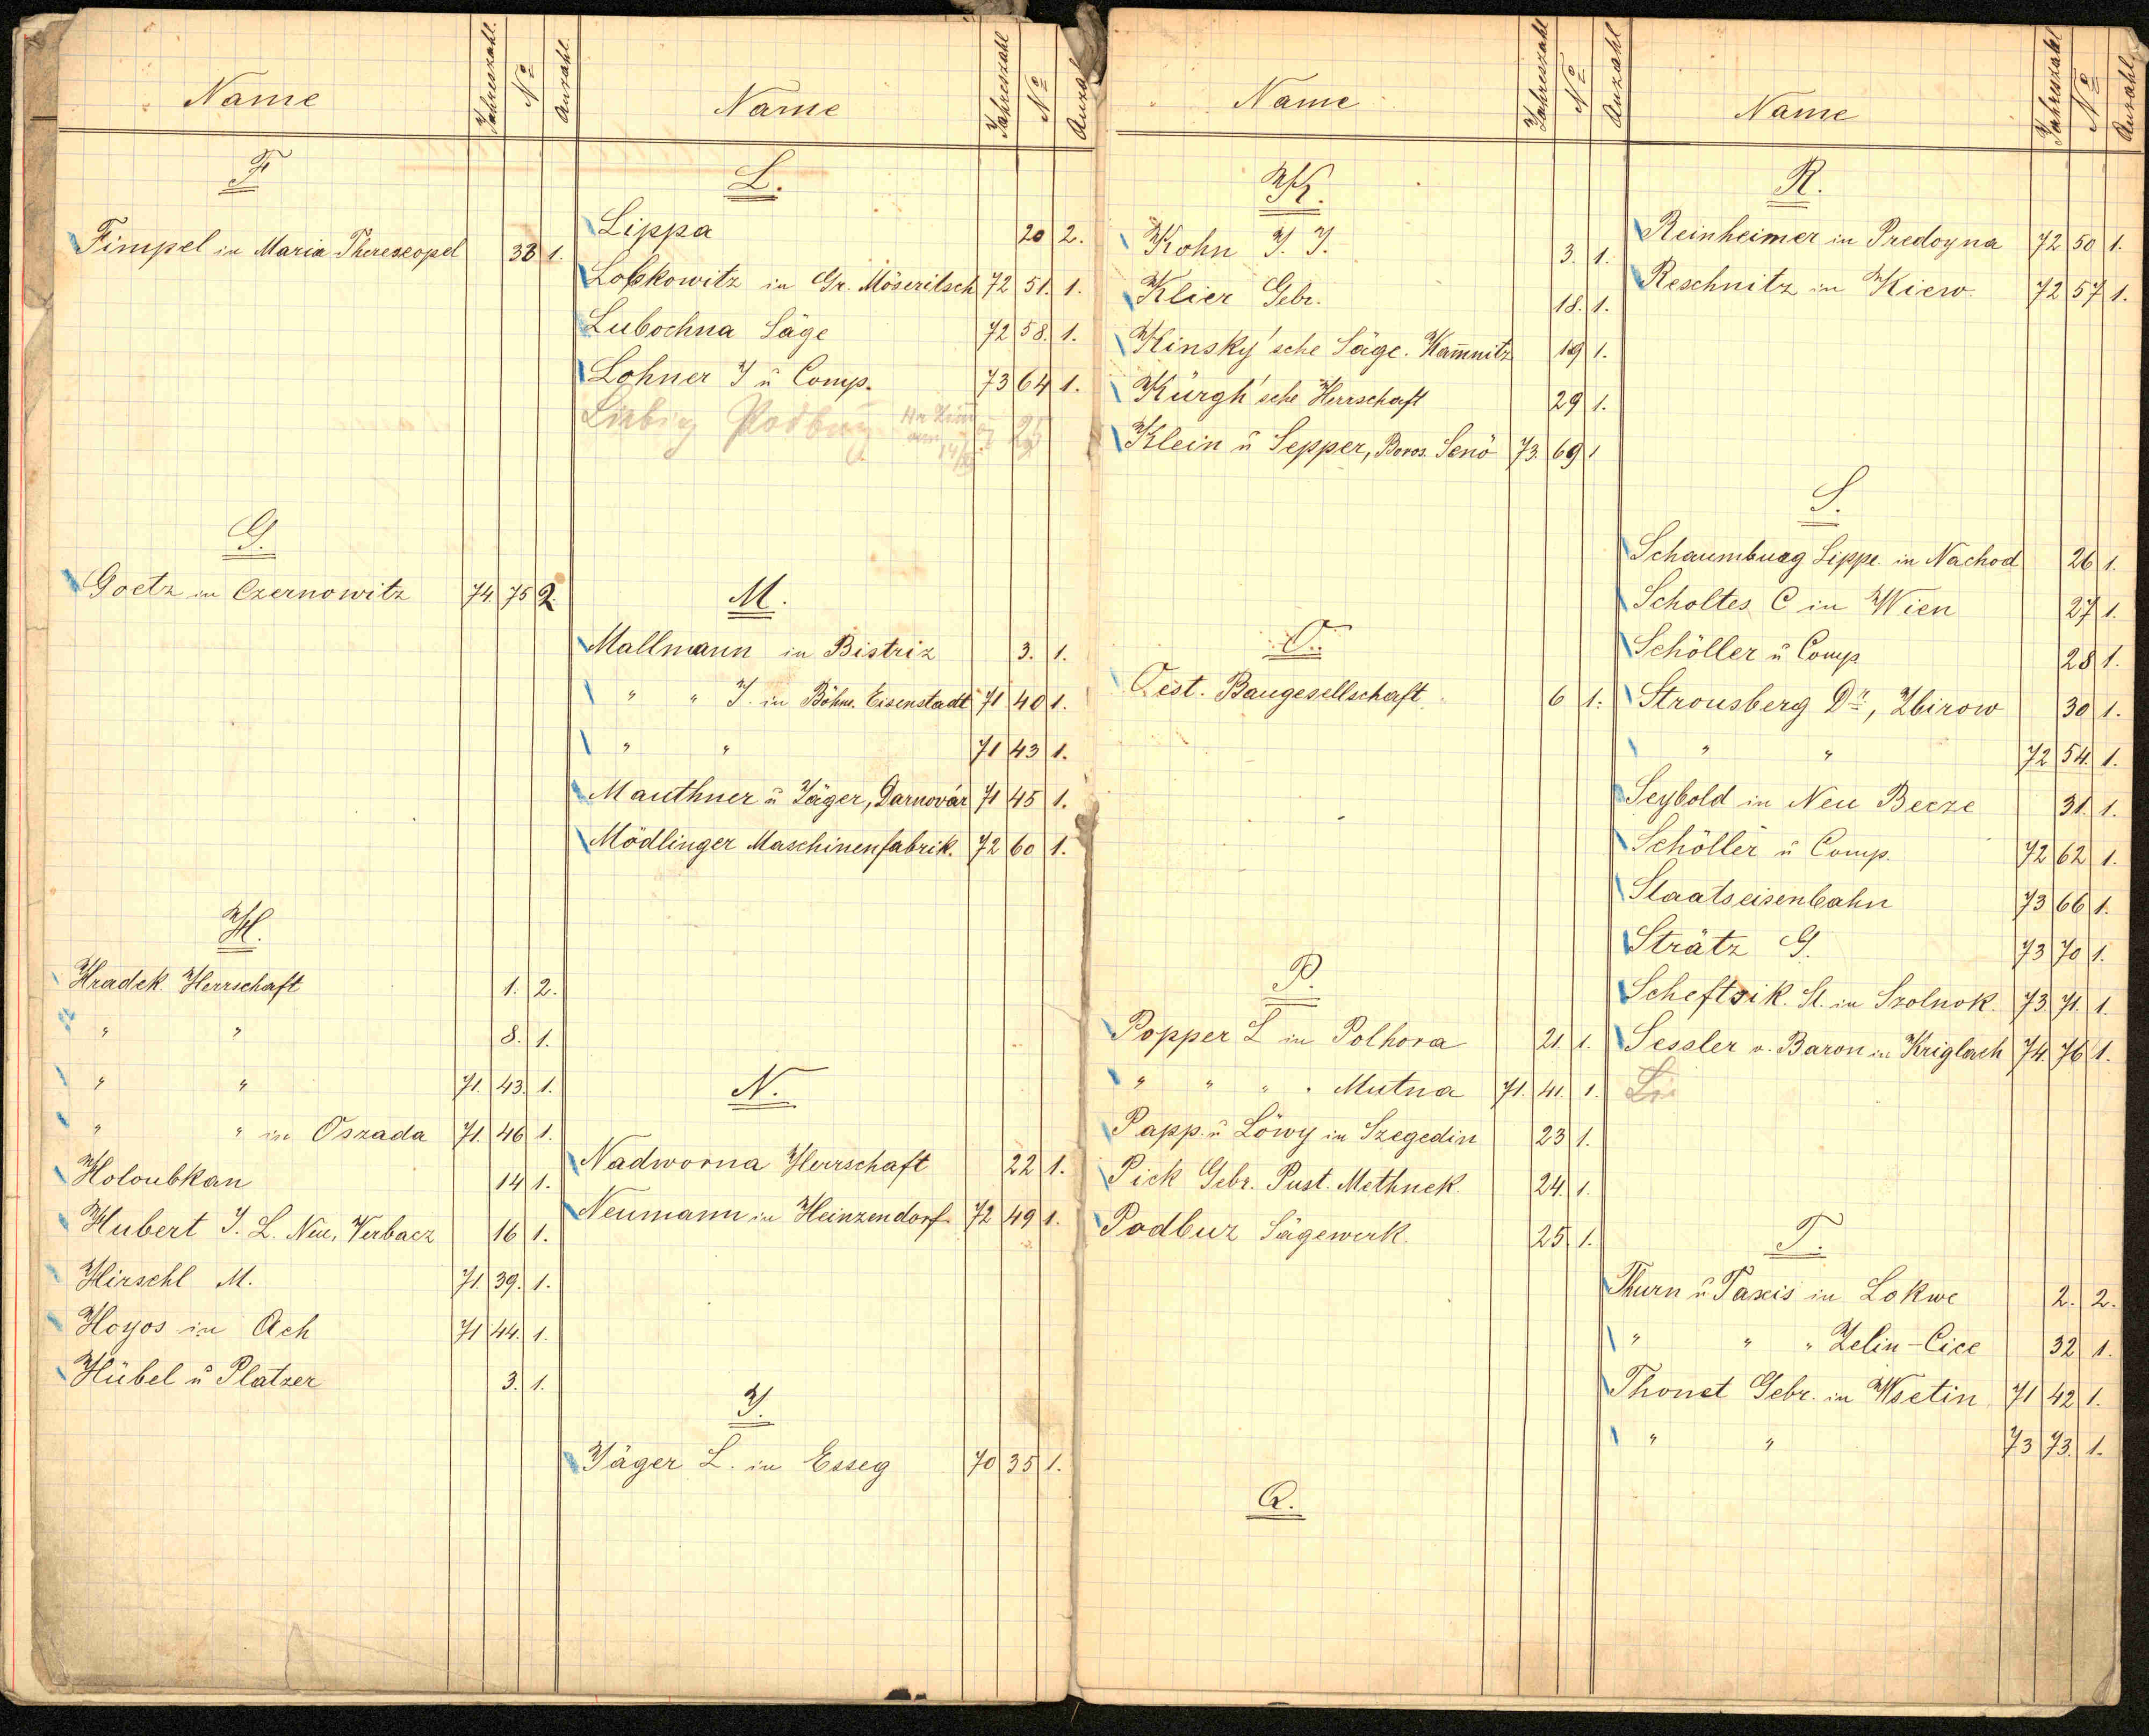 Name Jahreszahl. Nº Anzahl.
F
Fimpel in Maria Thereseopel 33 1.
G.
Goetz in Czernowitz 74. 75 2.
H.
Hradek Herrschaft 1. 2.
" " 8. 1.
" " 71. 43. 1.
" " in Oszada 71. 46 1.
Holoubkan 14 1.
Hubert J. L. Neu. Verbacz 16 1.
Hirschl M. 71. 39. 1.
Hoyos in Ach 71 44. 1.
Hübel u Platzer 3. 1.
Name Jahreszahl Nº Anzahl
L.
Lippa 20 2.
Lobkowitz in Gr. Möseritsch 72 51. 1.
Lubochna Säge 72 58. 1.
Lohner J u Comp. 73 64 1.
Liebig Podbuz 25
M.
Mallmann in Bistriz 3. 1.
" " J. in Böhm. Eisenstadt 71 40 1.
" " 71 43 1.
Mauthner u Jäger, Darnovár 71 45 1.
Mödlinger Maschinenfabrik. 72 60 1.
N.
Nadworna Herrschaft 22 1.
Neumann in Heinzendorf 72 49 1.
J.
Jäger L. in Esseg 70 35 1.
Name Jahreszahl Nº Anzahl
K.
Kohn J. J. 3. 1.
Klier Gebr. 18. 1.
Kinsky'sche Säge. Kam̄nitz 19 1.
Kürgh'sche Herrschaft 29 1.
Klein u Sepper, Boros. Senö 73. 69 1
O.
Oest. Baugesellschaft 6 1.
P.
Popper L in Polhora 21. 1.
" " " " Mutna 71. 41. 1.
Papp. u Löwy in Szegedin 23 1.
Pick Gebr. Pust. Methnek. 24. 1.
Podbuz Sägewerk 25. 1.
Q.
Name Jahreszahl Nº Anzahl
R.
Reinheimer in Predoyna 72 50 1.
Reschnitz in Kiew. 72 57 1.
S.
Schaumburg Lippe in Nachod 26 1.
Scholtes C in Wien 27 1.
Schöller u Comp 28 1.
Strousberg Dr, Zbirow 30 1.
" " 72 54. 1.
Seybold in Neu Becze 31. 1.
Schöller u Comp. 72 62 1.
Staatseisenbahn 73 66 1.
Strätz G. 73 70 1.
Scheftsik. St. in Szolnok. 73. 71. 1.
Sessler v. Baron in Kriglach 74. 76 1.
T.
Thurn u Taxis in Lokwe 2. 2.
" " " Zelin-Cice 32 1.
Thonet Gebr. in Wsetin 71 42 1.
" " 73 73. 1.